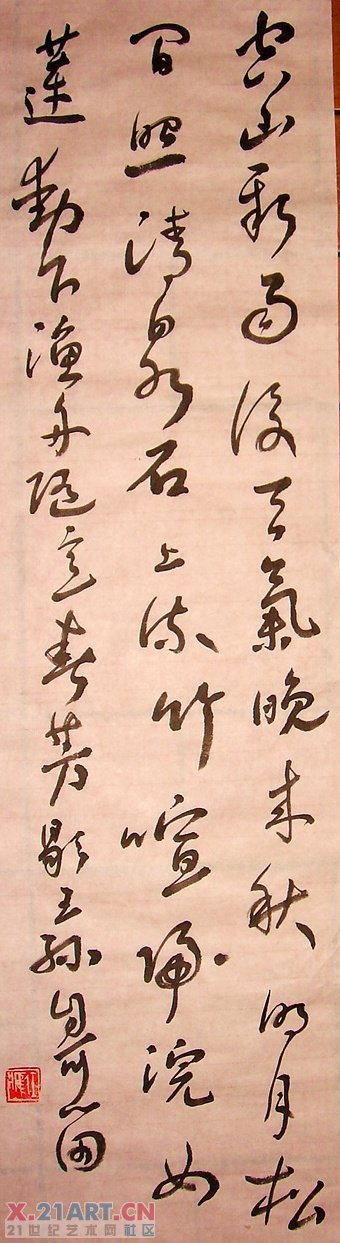 空山新雨后天气晚来秋明月松
间照清泉石上流竹喧归浣女
莲动下渔舟随意春芳歇王孙自可留
X.21ART.CN
21世纪艺术网社区